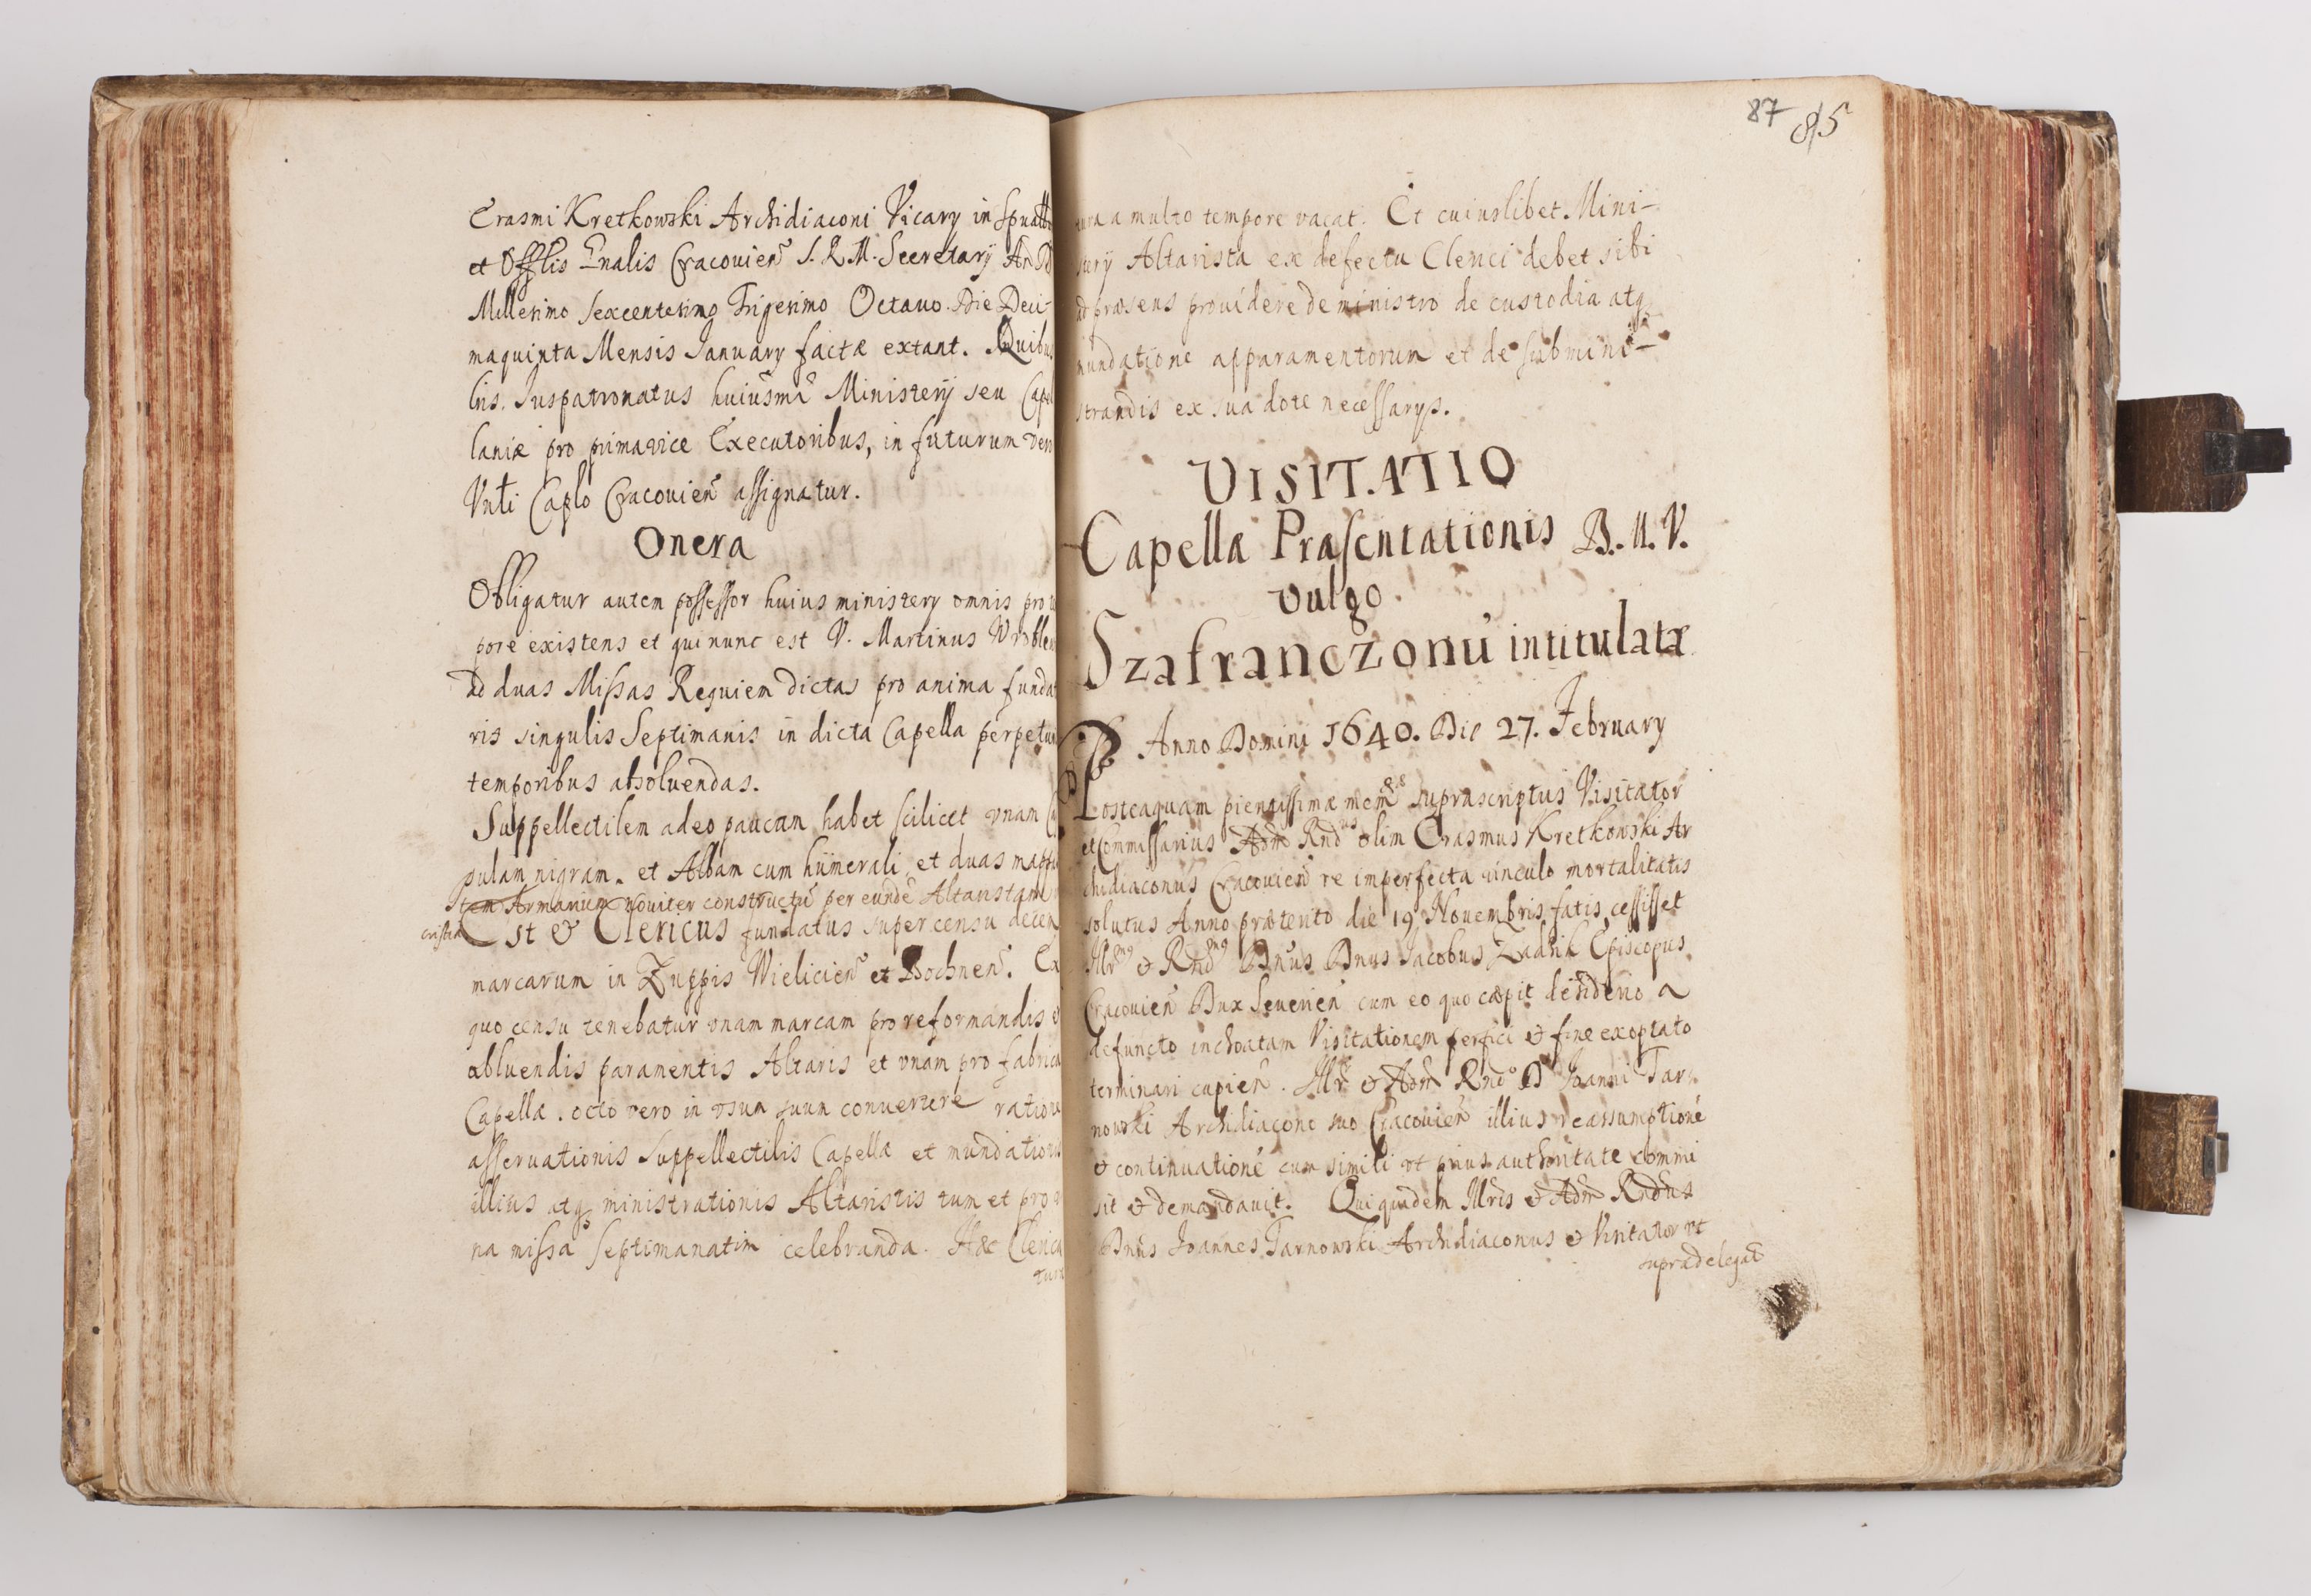 Erasmi Kretkowski Archidiaconi Vicarÿ in Spualibu
et Offlis Gnalis Cracouien S. R. M. Secretarÿ An D
Millesimo sexcentesimo Trigesimo Octauo. Die Deci-
maquinta Mensis Ianuarÿ factæ extant. Quibus
lris. Iuspatronatus huiusmi Ministerÿ seu Capel
laniæ pro prima vice Executoribus, in futurum vero
Vnti Caplo Cracouien assignatur.
Onera
Obligatur autem possessor huius ministerÿ omnis pro te
pore existens et qui nunc est V. Martinus
ad duas Missas Requiem dictas pro anima fundat
ris singulis Septimanis in dicta Capella perpetuis
temporibus absoluendas.
Suppellectilem adeo paucam habet scilicet vnam Ca
pulam nigram. et Albam cum humerali et duas mappas
Item Armarium noviter constructu per eunde Altaristam
Est & Clericus fundatus super censu decem
marcarum in Zuppis Wielicien et Bochnen. Ex
quo censu tenebatur vnam marcam pro reformandis et
abluendis paramentis Altaris et vnam pro fabrica
Capellæ. octo vero in vsum suum conuertere ratione
asseruationis Suppellectilis Capellæ et mundationis
illius atq ministrationis Altaristis tum et pro v
na missa septimanatim celebranda. Hæc Clerica
tura
87 85
tura a multo tempore vacat. Et cuiuslibet Mini-
sterÿ Altarista ex defectu Clerici debet sibi
ad præsens prouidere de ministro de custodia atq
mundatione apparamentorum et de submini-
strandis ex sua dote necessarÿs.
VISITATIO
Capellæ Præsentationis B. M. V.
vulgo
Szafranczonu intitulatæ
Anno Domini 1640. Die 27. February
Posteaquam pientissimæ mem suprascriptus Visitator
et Commissarius Adm Rnd olim Erasmus Kretkowski Ar
chidiaconus Cracouien re imperfecta uinculo mortalitatis
solutus Anno præterito die 19 Nouembris fatis cessisset
Illr & Rnd Dnus Dnus Iacobus Zadzik Episcopus
Cracouien Dux Seuerien cum eo quo cæpit desiderio a
defuncto inchoatam Visitationem perfici & fine exoptato
terminari cupien. Illr & Adm Rnd D Ioanni Tar-
nowski Archidiacono suo Cracouien illius reassumptione
& continuatione cum simili vt prius authoritate commi
sit & demandauit. Qui quidem Illris & Adm Rndus
Dnus Ioannes Tarnowski Archidiaconus & Visitator vt
supra delegat